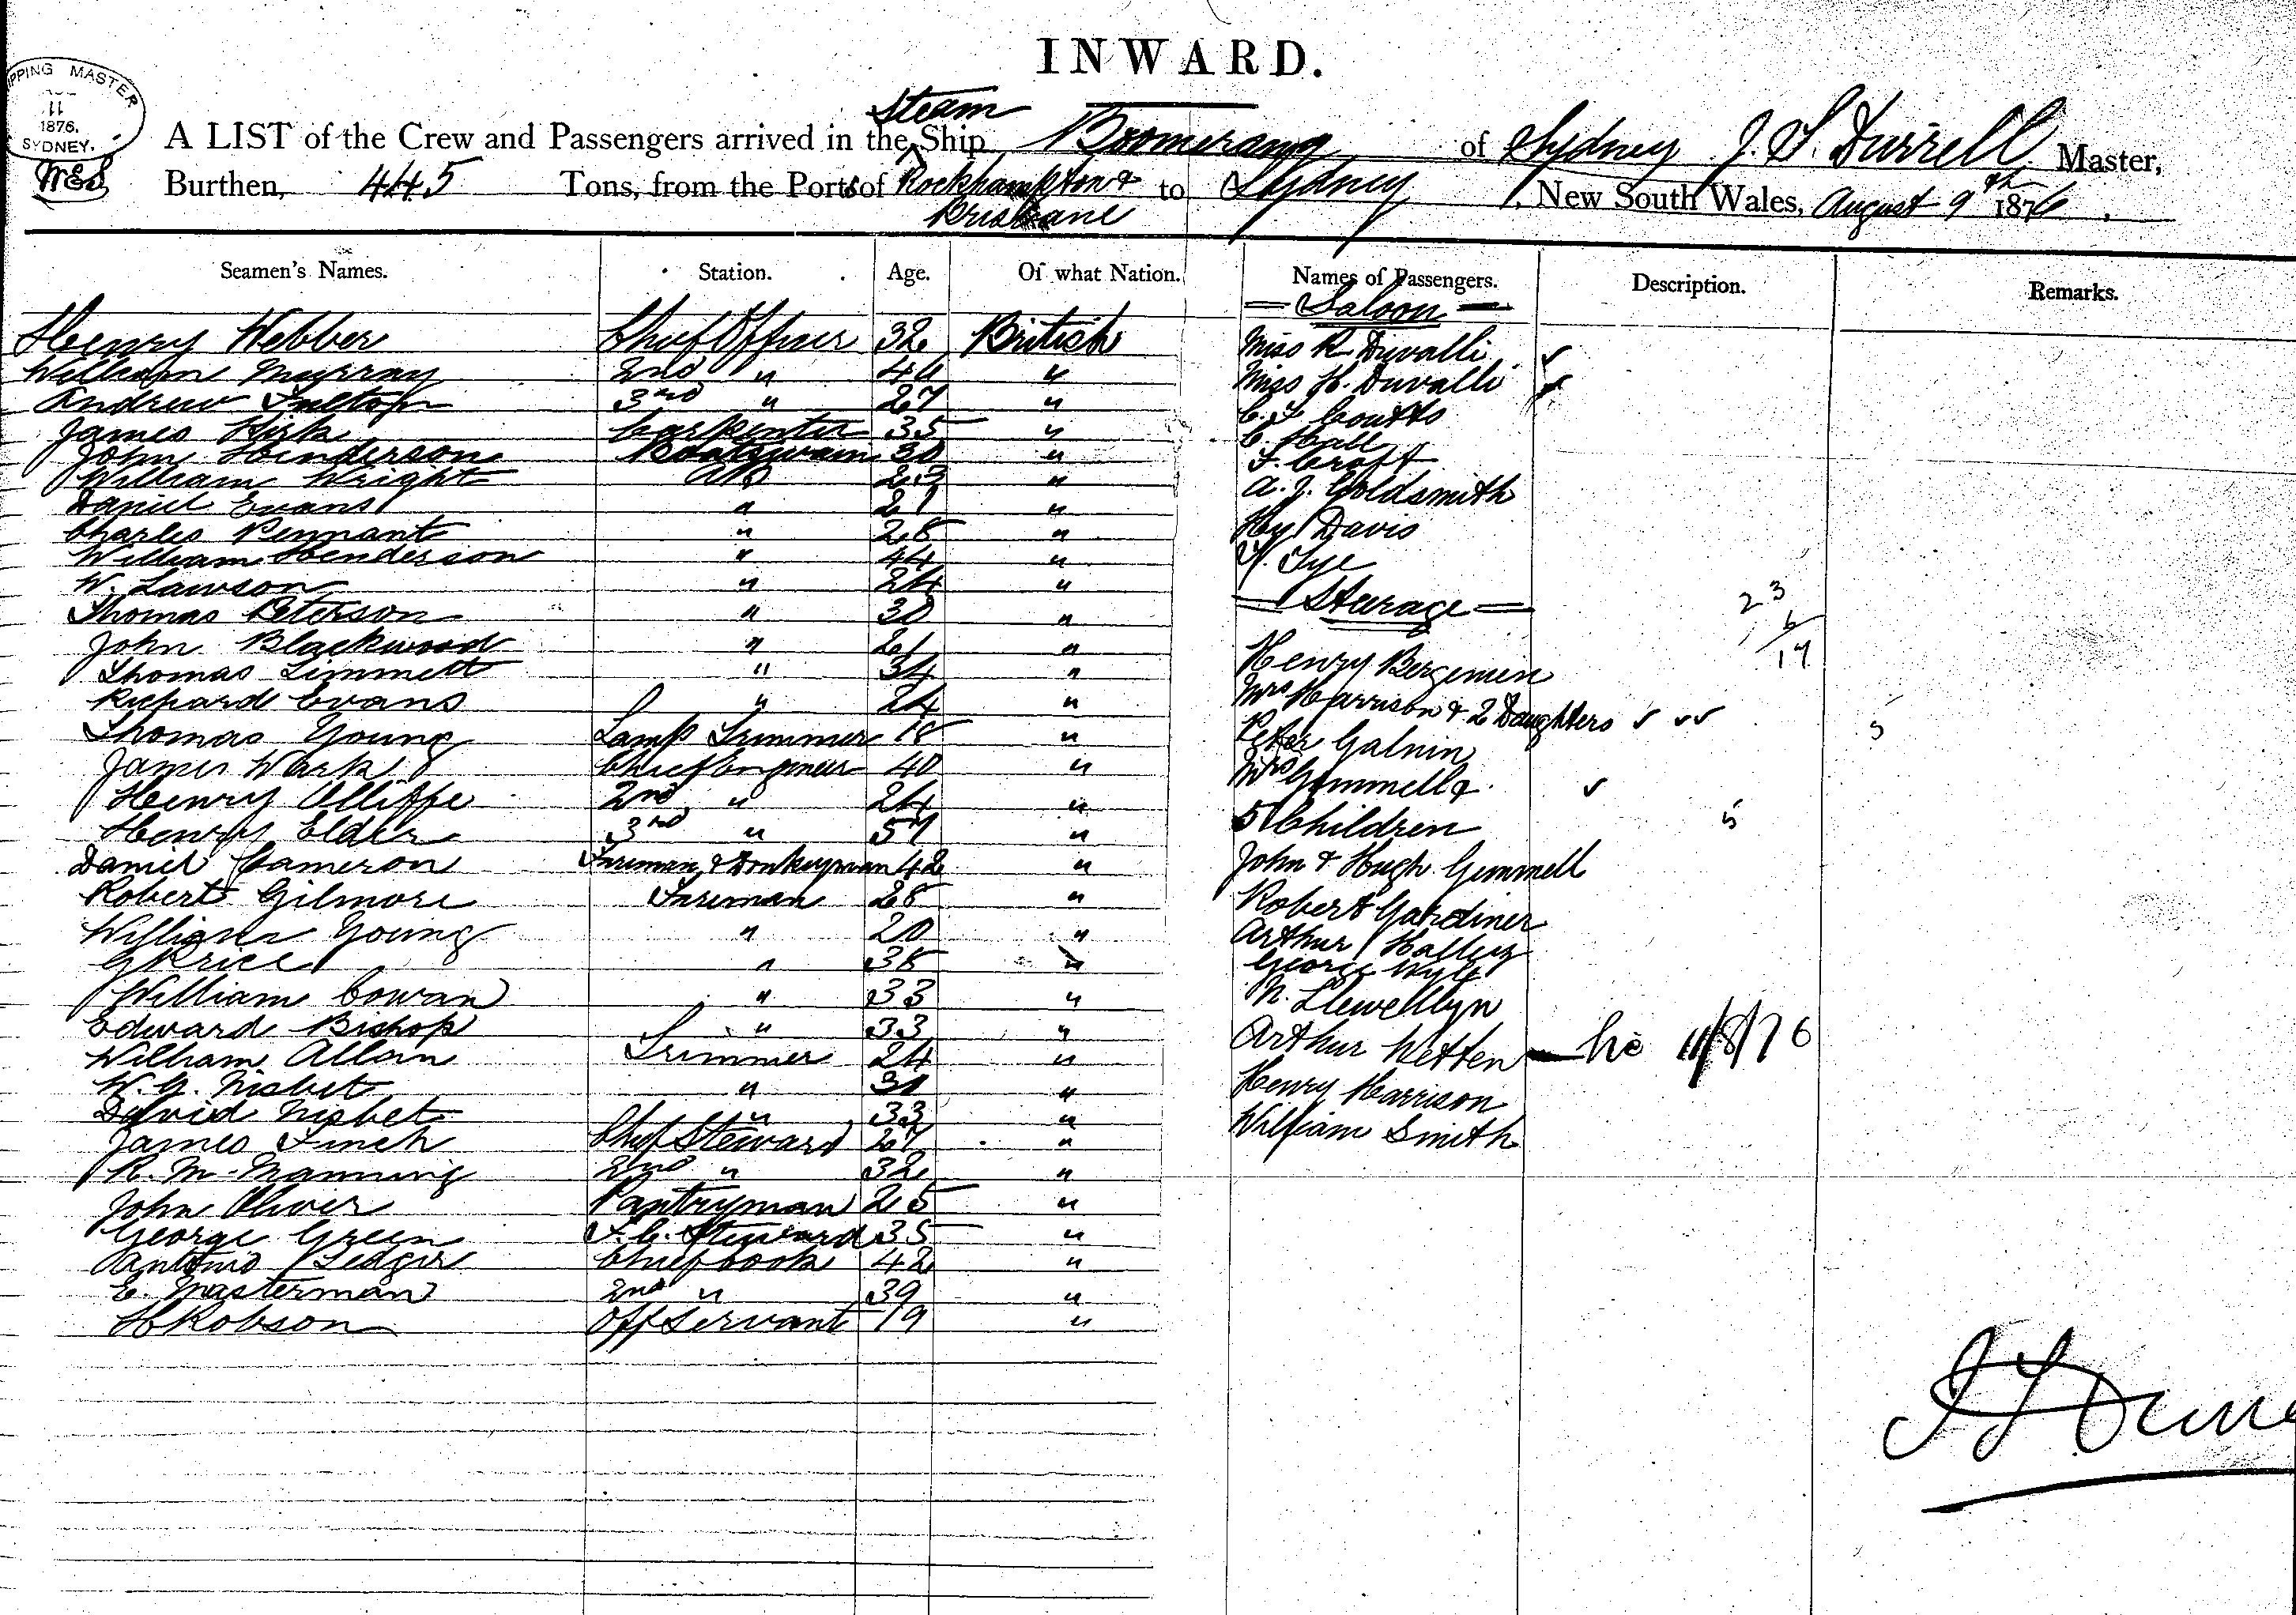 INWARD.
SHIPPING MASTER
11
1876.
SYDNEY.
Steam
A LIST of the Crew and Passengers arrived in the Ship Boomerang of Sydney J. S. Durrell Master,
Burthen, 445 Tons, from the Ports of Rockhampton & Brisbane to Sydney, New South Wales, August 9th 1876.
Seamen's Names. Station. Age. Of what Nation. Names of Passengers. Description. Remarks.
Henry Webber Chief Officer 32 British
William Murray 2nd " "
Andrew Fulton 3rd " 27 "
James Kirk Carpenter 35 "
John Henderson Boatswain 30 "
William Wright AB 23 "
Daniel Evans " 21 "
Charles Pennant " 28 "
William Henderson " 44 "
W. Lawson " 24 "
Thomas Peterson " 30 "
John Blackwood " 21 "
Thomas Limmett " 34 "
Richard Evans " 24 "
Thomas Young Lamp Trimmer 18 "
James Wark Chief Engineer 40 "
Henry Olliffe 2nd " 24 "
Henry Elder 3rd " 57 "
Daniel Cameron Fireman & Donkeyman 42 "
Robert Gilmore Fireman 28 "
William Young " 20 "
G Price " 38 "
William Cowan " 33 "
Edward Bishop " 33 "
William Allan Trimmer 24 "
W. G. Nisbet " "
David Nisbet " 33 "
James Finch Chief Steward 27 "
R. M. Manning 2nd " 32 "
John Oliver Pantryman 25 "
George Green F. C. Steward 35 "
Antonio Chief Cook 42 "
E. Masterman 2nd " 39 "
H Robson Off Servant 19 "
Saloon
Miss R. Duvalli ✓
Miss H. Duvalli ✓
Coutts
C. Hall
F. Croft
A. J. Goldsmith
Hy Davis
Tye
Steerage
23
6
17
Henry Bergemin
Mrs Harrison & 2 Daughters ✓ ✓✓
Peter Galnin
Mrs Gemmell & ✓
5 Children 5
John & Hugh Gemmell
Robert Gardiner
Arthur Halley
George Wyle
N. Llewellyn
Arthur Ketten 11/8/76
Henry Harrison
William Smith